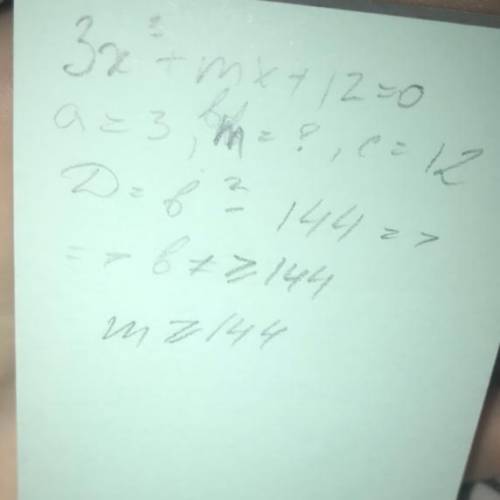 3x²+mx+12=0
a=3, m=?, c=12
D=b²-144=>
=> b ≥144
m≥144